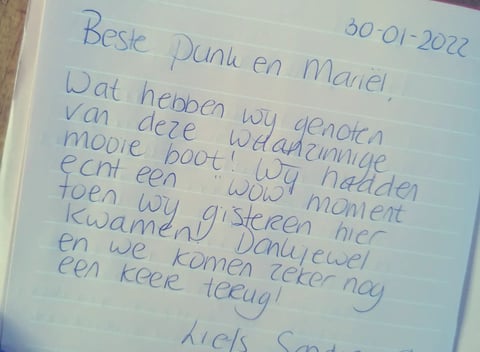 30-01-2022
Beste Dunk en Mariël,
Wat hebben wy genoten
van deze waanzinnige
mooie boot! Wy hadden
echt een "wow" moment
toen wy gisteren hier
kwamen! Dankjewel
en we komen zeker nog
een keer terug!
Liefs